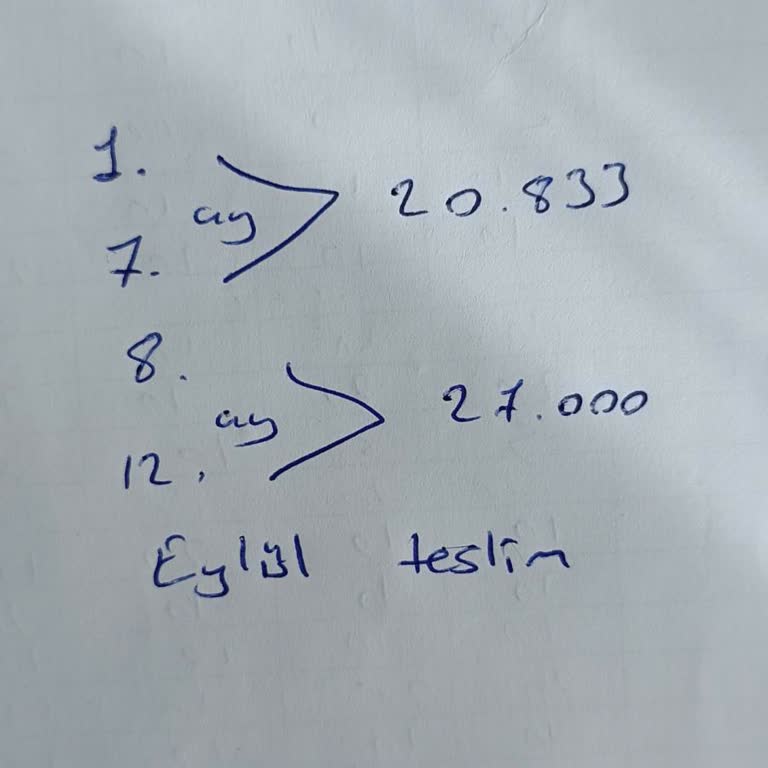 1.
ay > 20.833
7.
8.
ay > 27.000
12.
Eylül teslim